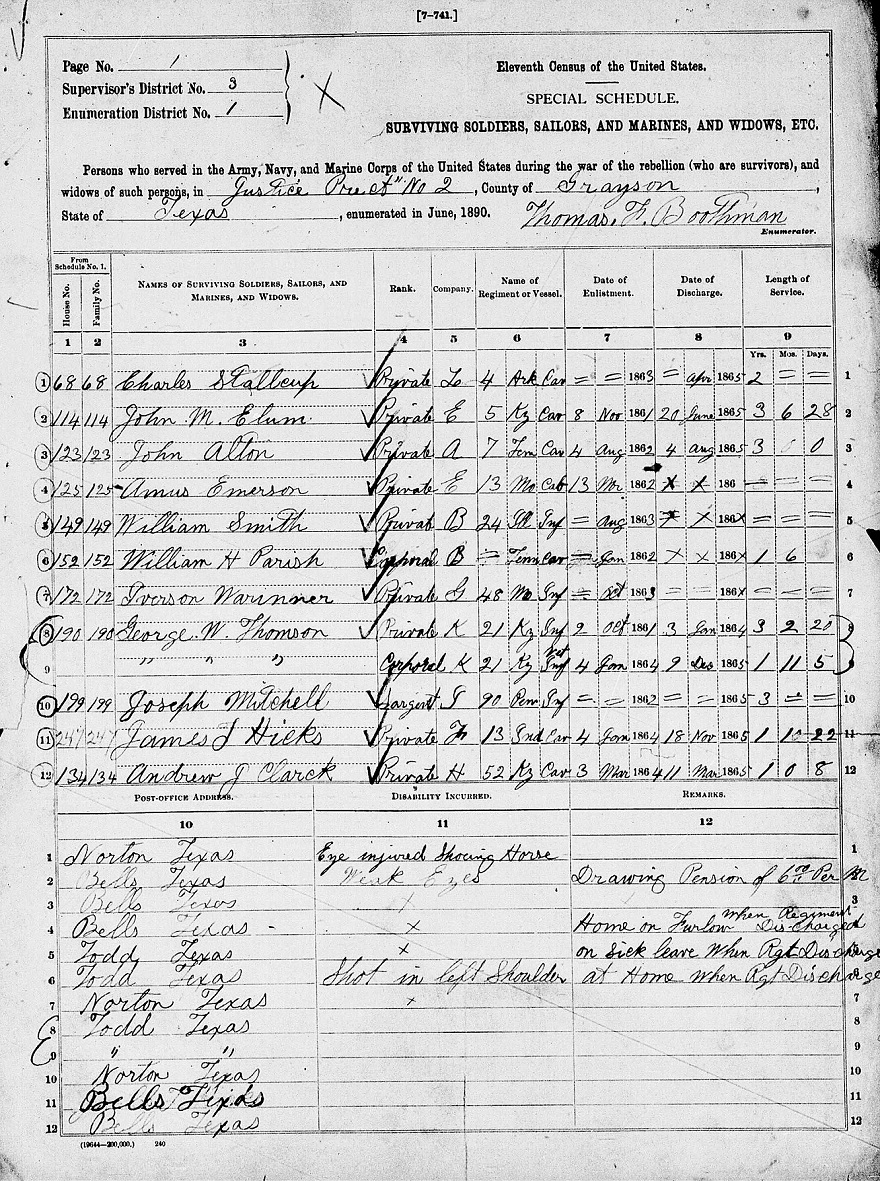 [7-741.]
Page No. 1
Supervisor's District No. 3
Enumeration District No. 1
X
Eleventh Census of the United States.
SPECIAL SCHEDULE.
SURVIVING SOLDIERS, SAILORS, AND MARINES, AND WIDOWS, ETC.
Persons who served in the Army, Navy, and Marine Corps of the United States during the war of the rebellion (who are survivors), and
widows of such persons, in Justice Prect No 2, County of Grayson,
State of Texas, enumerated in June, 1890. Thomas. F. Boothman
Enumerator.
From Schedule No. 1.
House No. Family No. NAMES OF SURVIVING SOLDIERS, SAILORS, AND MARINES, AND WIDOWS. Rank. Company. Name of Regiment or Vessel. Date of Enlistment. Date of Discharge. Length of Service.
1 2 3 4 5 6 7 8 9
Yrs. Mos. Days.
1 68 68 Charles Stallcup Private L 4 Ark Cav = = 1863 = Apr 1865 2 = = 1
2 114 114 John M. Elum Private E 5 Ky Cav 8 Nov 1861 20 June 1865 3 6 28 2
3 123 123 John Alton Private A 7 Tenn Cav 4 Aug 1862 4 Aug 1865 3 0 3
4 125 125 Amus Emerson Private E 13 Mo Cav 13 1862 X X 186 = = = 4
5 149 149 William Smith Privat B 24 Ill Inf = Aug 1863 X X 186X = = = 5
6 152 152 William H Parish Corporal B = Tenn Cav = Jan 1862 X X 186X 1 6 6
7 172 172 Iverson Warinner Private G 48 Mo Inf = Oct 1863 = = 186X = = = 7
8 190 190 George W. Thomson Private K 21 Ky Inf 2 Oct 1861 3 Jan 1864 3 2 20 8
9 " " " Corporal K 21 Ky Vet Inf 4 Jan 1864 9 Des 1865 1 11 5 9
10 199 199 Joseph Mitchell Sargent I 90 Pen Inf = = 1862 = = 1865 3 = = 10
11 247 247 James T Hicks Private F 13 Ind Cav 4 Jan 1864 18 Nov 1865 1 10 22 11
12 134 134 Andrew J Clarck Private H 52 Ky Cav 3 Mar 1864 11 Mar 1865 1 0 8 12
POST-OFFICE ADDRESS. DISABILITY INCURRED. REMARKS.
10 11 12
1 Norton Texas Eye injured Shoeing Horse 1
2 Bells Texas Weak Eyes Drawing Pension of 6 00 Per M
3 Bells Texas X 3
4 Bells Texas X Home on Furlow when Regiment Discharged
5 Todd Texas X on Sick leave When Rgt Discharge
6 Todd Texas Shot in left Shoulder at Home When Rgt Discharge
7 Norton Texas X 7
8 Todd Texas 8
9 " " 9
10 Norton Texas 10
11 Bells Texas 11
12 Bells Texas 12
(19644—200,000.) 240